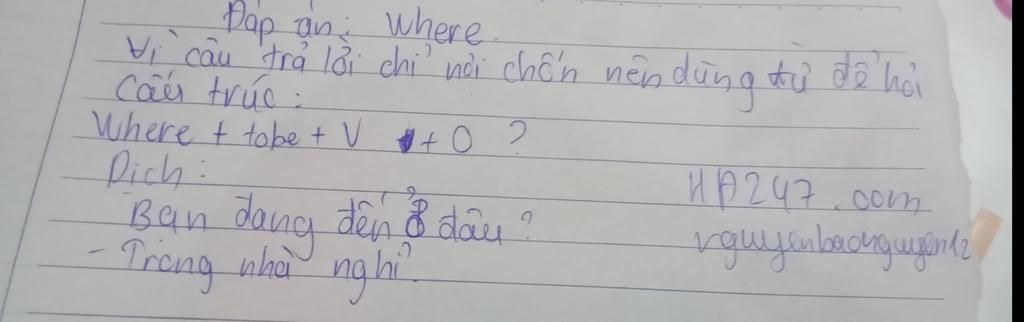 Đáp án: Where
Vì câu trả lời chỉ nơi chốn nên dùng từ để hỏi
Cấu trúc:
Where + tobe + V + O ?
Dịch:
HD247.com
Bạn đang đến ở đâu?
nguyenbaonguyen12
- Trong nhà nghỉ.